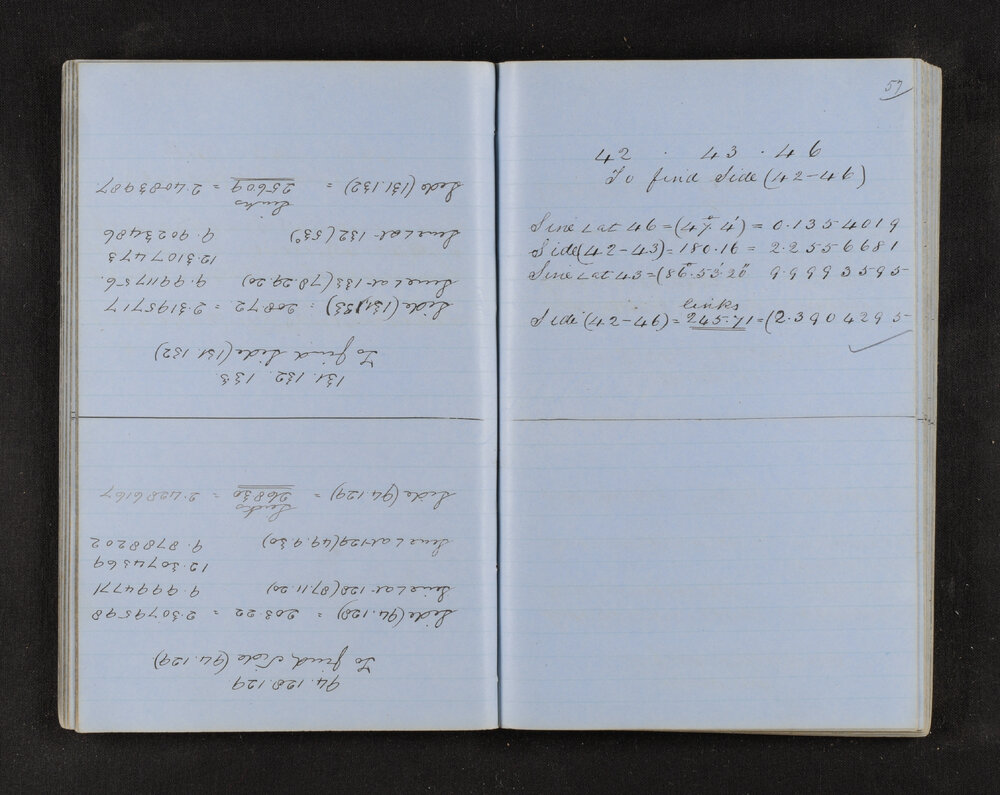 94. 128. 129
To find Side (94.129)
Side (94.128) = 203.22 = 2.3079598
Sine ∠ at 128 (87.11.20) 9.9994771
12.3074369
Sine ∠ at 129 (49.9.30) 9.8788202
Links
Side (94.129) = 268.30 = 2.4286167
131. 132. 133
To find Side (131.132)
Side (131.133) = 208.72 = 2.3195717
Sine ∠ at 133 (78.29.20) 9.9911756
12.3107473
Sine ∠ at 132 (53°) 9.9023486
Links
Side (131.132) = 256.09 = 2.4083987
57
42 . 43 . 46
To find Side (42-46)
Sine ∠ at 46 = (47° 4') = 0.1354019
Side (42-43) = 180.16 = 2.2556681
Sine ∠ at 43 = (86° 53' 20" 9.9993595
links
Side (42-46) = 245.71 = (2.3904295